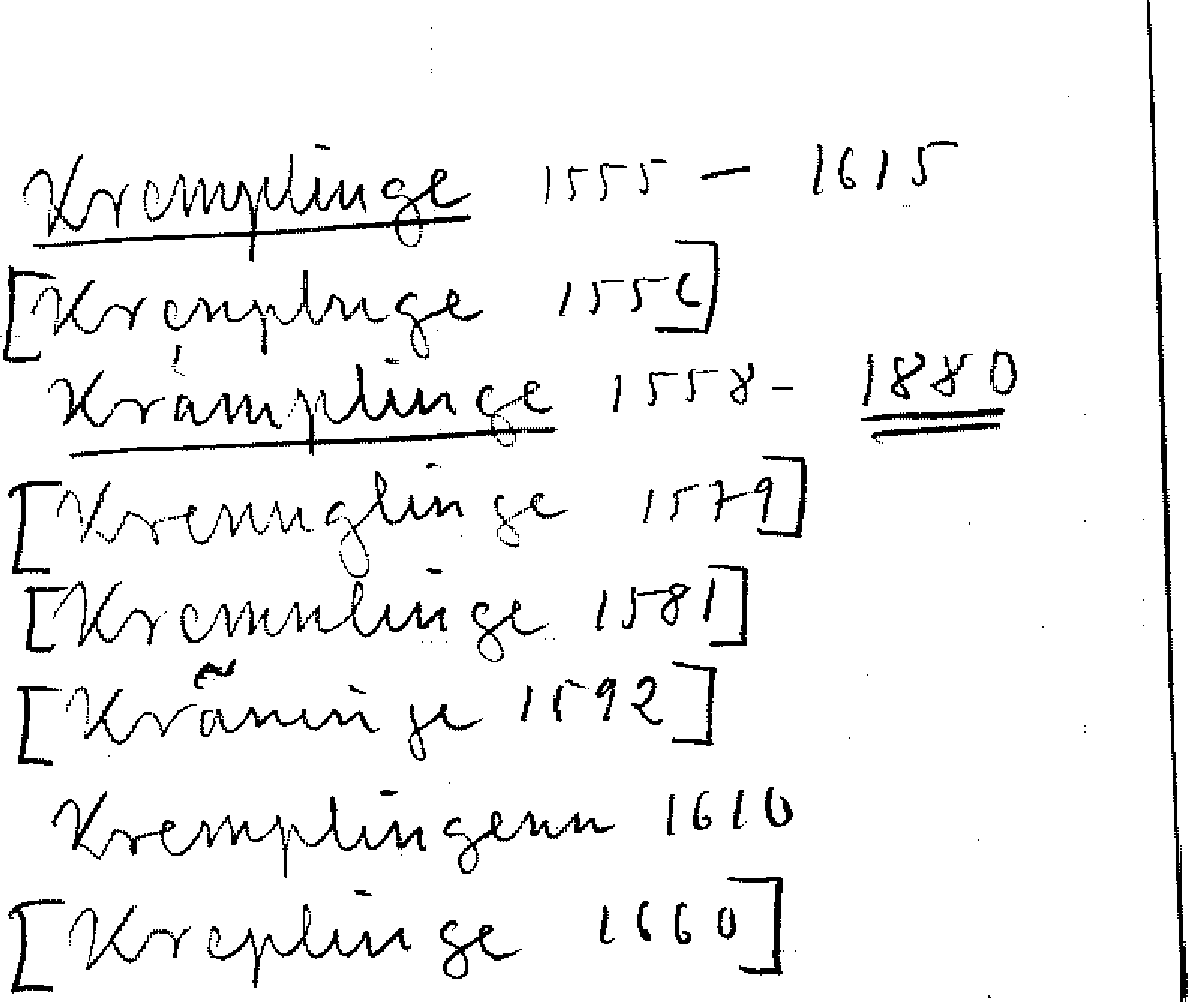 Kremplinge 1555 – 1615
[Kremplnge 1556]
Krämplinge 1558 - 1880
[Kremglinge 1579]
[Kremnlinge 1581]
Kremplingenn 1610
[Kreplinge 1660]